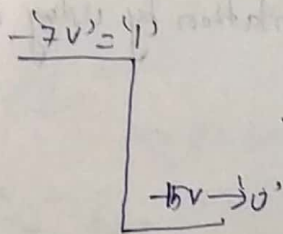 -'7V' = '1'
-15V → '0'